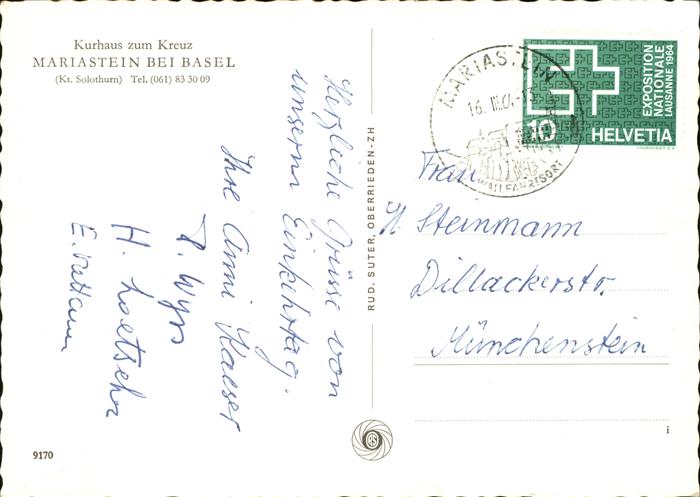 Kurhaus zum Kreuz
MARIASTEIN BEI BASEL
(Kt. Solothurn) Tel. (061) 83 30 09
Herzliche Grüsse von
unserm Einkehrtag.
Ihre Anni Kaeser
R. Wyss
H. Loetscher
E.
RUD. SUTER, OBERRIEDEN-ZH
MARIASTEIN
16. III. 64 - 13
WALLFAHRTSORT
EXPOSITION
NATIONALE
LAUSANNE 1964
10
HELVETIA
Frau
H Steinmann
Dillackerstr.
Münchenstein
9170
RS
i